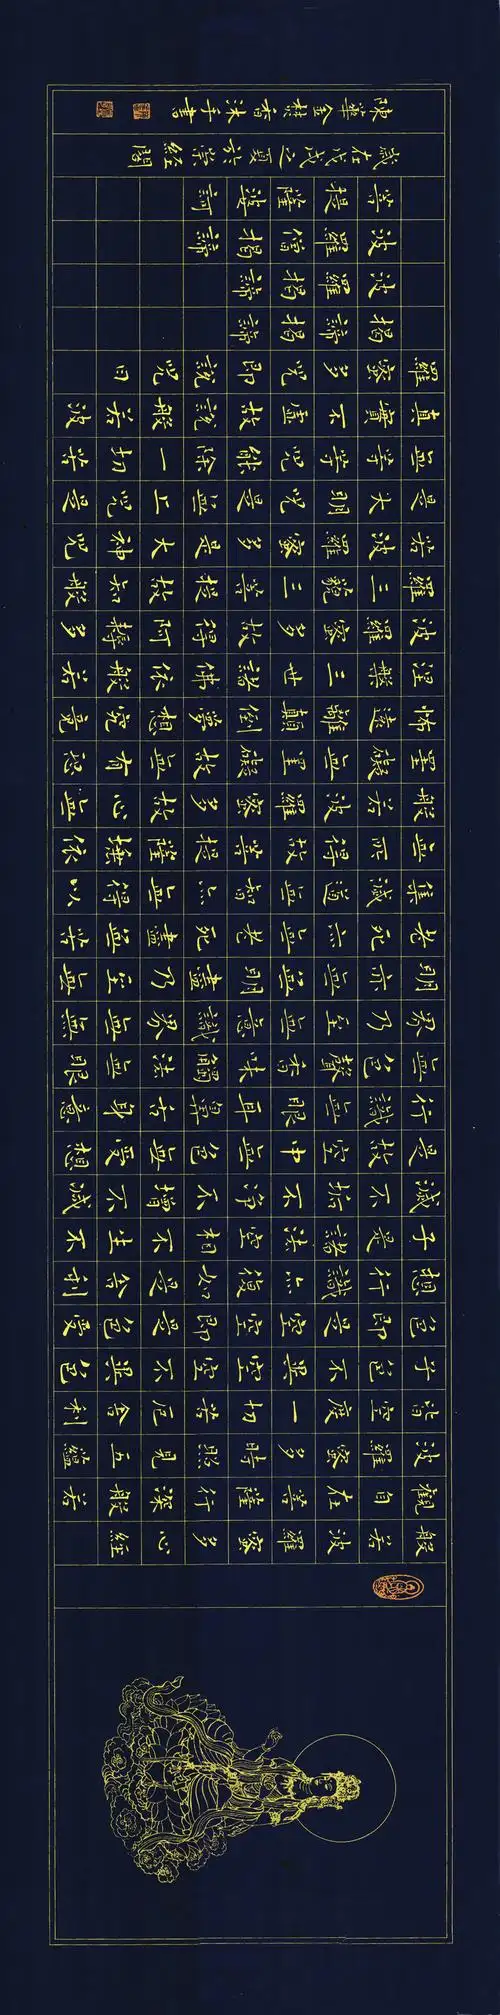 般若波羅蜜多心經
觀自在菩薩行深般若
波羅蜜多時照見五蘊
皆空度一切苦厄舍利
子色不異空空不異色
色即是空空即是色受
想行識亦復如是舍利
子是諸法空相不生不
滅不垢不淨不增不減
是故空中無色無受想
行識無眼耳鼻舌身意
無色聲香味觸法無眼
界乃至無意識界無無
明亦無無明盡乃至無
老死亦無老死盡無苦
集滅道無智亦無得以
無所得故菩提薩埵依
般若波羅蜜多故心無
罣礙無罣礙故無有恐
怖遠離顛倒夢想究竟
涅槃三世諸佛依般若
波羅蜜多故得阿耨多
羅三藐三菩提故知般
若波羅蜜多是大神咒
是大明咒是無上咒是
無等等咒能除一切苦
真實不虛故說般若波
羅蜜多咒即說咒曰
揭諦揭諦
波羅揭諦
波羅僧揭諦
菩提薩婆訶
歲在戊戌之夏於崇經閣
陳華金焚香沐手書